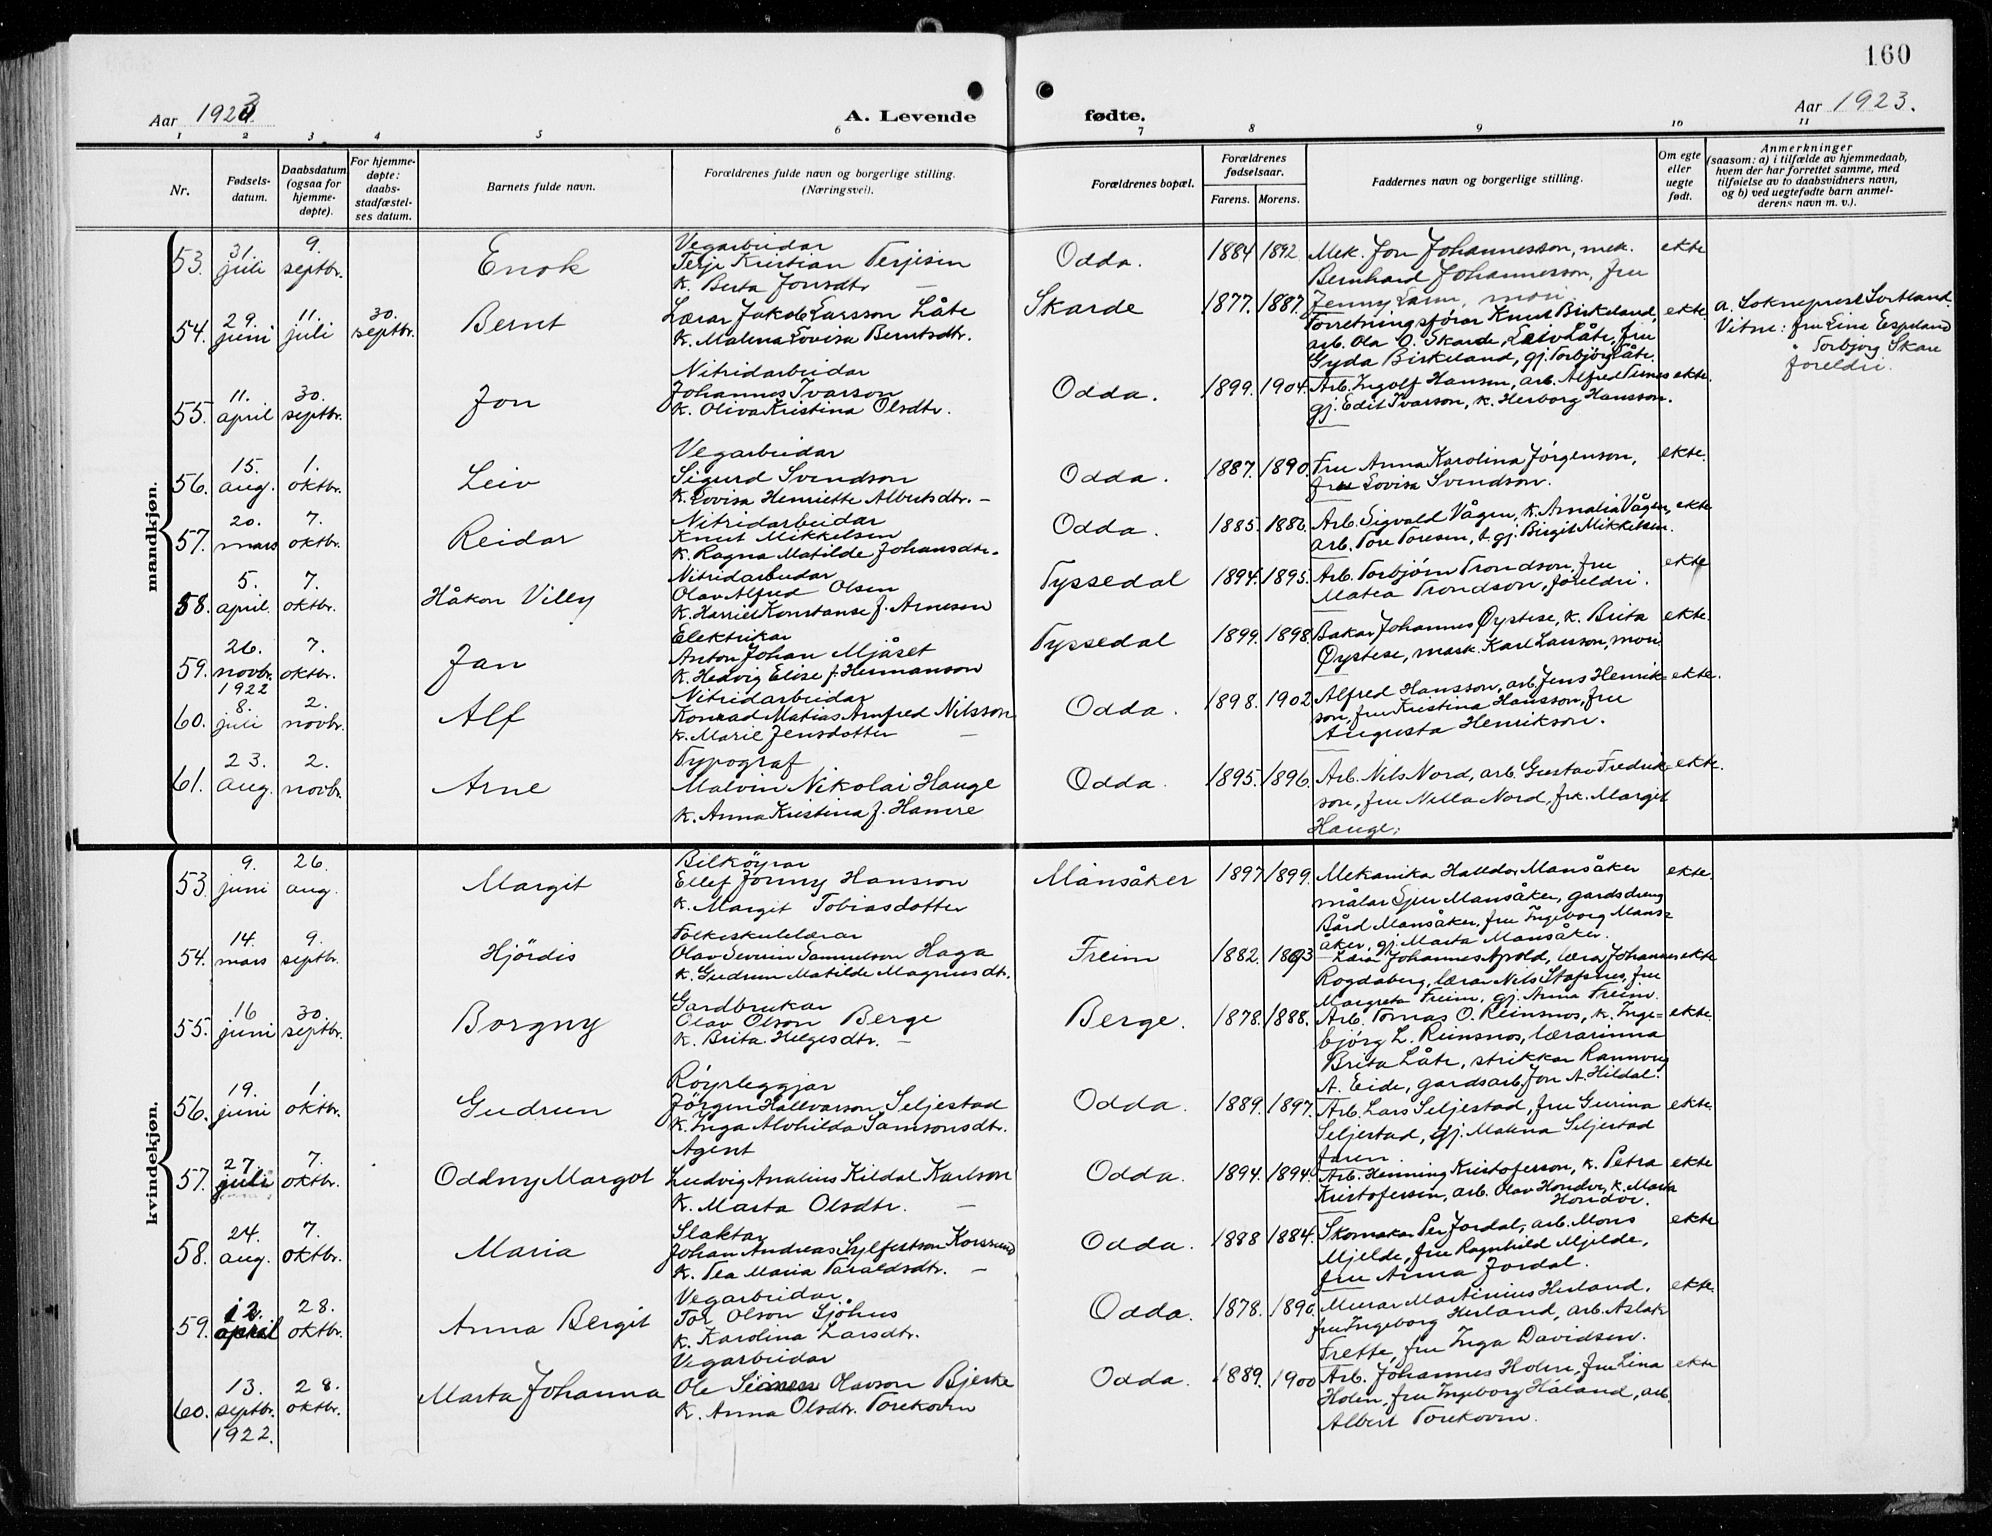 160
Aar 1923
A. Levende
fødte.
Aar 1923.
1 2 3 4 5 6 7 8 9 10 11
Nr.
Fødsels-
datum.
Daabsdatum
(ogsaa for
hjemme-
døpte).
For hjemme-
døpte:
daabs-
stadfæstel-
ses datum.
Barnets fulde navn.
Forældrenes fulde navn og borgerlige stilling.
(Næringsvei).
Forældrenes bopæl.
Forældrenes
fødselsaar.
Farens. Morens.
Faddernes navn og borgerlige stilling.
Om egte
eller
uegte
født.
Anmerkninger
(saasom: a) i tilfælde av hjemmedaab,
hvem der har forrettet samme, med
tilføielse av to daabsvidners navn,
og b) ved uegtefødte barn anmel-
derens navn m. v.).
mandkjøn.
53.
31.
juli
9.
septbr.
Enok
Vegarbeidar
Terje Kristian Terjesen
k. Berta Jonsdtr. —
Odda.
1884 1892.
Mek. Jon Johannesson, mek.
Bernhard Johannesson, fru
Jenny Larm, mori
ekte
54.
29.
juni
11.
juli
30.
septbr.
Bernt
Lærar Jakob Larsson Låte
k. Malena Lovisa Berntsdtr.
Skarde
1877. 1887.
Forretningsførar Knut Birkeland,
arb. Ola O. Skarde, Leiv Låte, fru
Gyda Birkeland, gj. Torbjørg Låte.
ekte.
a. Sokneprest Sortland
Vitne: fru Lina Espeland
" Torbjørg Skare
foreldri.
55.
11.
april
30.
septbr.
Jon
Nitridarbeidar
Johannes Ivarson
k. Oliva Kristina Olsdtr.
Odda.
1899. 1904.
Arb. Ingolf Hansen, arb. Alfred Ternes
gj. Edit Ivarson, k. Herborg Hansson.
ekte.
56.
15.
aug.
1.
oktbr.
Leiv
Vegarbeidar
Sigurd Svendson
k. Lovisa Henriette Albertsdtr. —
Odda.
1887. 1890.
Fru Anna Karolina Jørgenson,
fru Lovisa Svendson.
ekte.
57.
20.
mars
7.
oktbr.
Reidar
Nitridarbeidar
Knut Mikkelsen
k. Ragna Matilde Johansdtr.
Odda.
1885. 1886.
Arb. Sigvald Vågen, k. Amalia Vågen,
arb. Tore Toresen, t. gj. Birgit Mikkelsen.
ekte
58.
5.
april.
7.
oktbr.
Håkon Villy
Nitridarbeidar
Olav Alfred Olsen
k. Harriet Konstanse f. Arnesen
Tyssedal
1894. 1895.
Arb. Torbjörn Trondson, fru
Matea Trondson, foreldri.
ekte
59.
26.
novbr.
1922
7.
oktbr.
Jan
Elektrikar
Anton Johan Mjåset
k. Hedvig Elise f. Hermanson
Tyssedal
1899. 1898.
Bakar Johannes Øystese, k. Brita
Øystese, mask. Karl Larsson, mori
ekte.
60.
8.
juli
2.
novbr.
Alf
Nitridarbeidar
Konrad Matias Arnfred Nilsson
k. Marie Jensdotter —
Odda.
1898. 1902
Alfred Hansson, arb. Jens Henrik-
son, fru Kristina Hansson, fru
Augusta Henrikson.
ekte.
61.
23.
aug.
2.
novbr.
Arne
Typograf
Malvin Nikolai Hauge
k. Anna Kristina f. Hamre
Odda.
1895. 1896.
Arb. Nils Nord, arb. Gustav Fredrik-
son, fru Nella Nord, frk. Margit
Hauge.
ekte.
kvindekjøn.
53.
9.
juni
26.
aug.
Margit
Bilköyrar
Ellef Jonny Hansson
k. Margit Tobiasdotter
Mansåker
1897 1899.
Mekanika Halldor Mansåker
målar Sjur Mansåker, gardsdreng
Bård Mansåker, fru Ingeborg Mans-
åker, gj. Marta Mansåker.
ekte.
54.
14.
mars
9.
septbr.
Hjördis
Folkeskulelærar
Olav Severin Samuelson Haga
k. Gudrun Matilde Magnusdtr.
Freim
1882. 1893
Lærar Johannes Apold, lærar Johannes
Rogdaberg, lærar Nils Stapnes, fru
Margreta Freim, gj. Anna Freim.
ekte
55.
16
juni
30.
septbr.
Borgny
Gardbrukar
Olav Olson Berge
k. Brita Helgesdtr. —
Berge.
1878. 1888.
Arb. Tomas O. Reinsnos, k. Inge-
björg L. Reinsnos, lærarinna
Brita Låte, strikkar Rannveig
A. Eide, gardsarb. Jon A. Hildal.
ekte.
56.
19.
juni
1.
oktbr.
Gudrun
Röyrleggjar
Jörgen Hallvarson Seljestad
k. Inga Alvhilda Samsonsdtr.
Odda.
1889. 1897.
Arb. Lars Seljestad, fru Gurina
Seljestad, gj. Malena Seljestad
faren.
ekte.
57.
27.
juli
7.
oktbr.
Oddny Margot
Agent
Ludvig Analius Kildal Karlson
k. Marta Olsdtr. —
Odda.
1894. 1894.
Arb. Henning Kristoferson, k. Petra
Kristofersen, arb. Olav Hordvi, k. Marta
Hordvi.
ekte
58.
24.
aug.
7.
oktbr.
Maria
Slaktar
Johan Andreas Sylfestson Korsrud
k. Tea Maria Taraldsdtr. —
Odda.
1888 1884.
Skomakar Per Jordal, arb. Mons
Mjelde, fru Ragnhild Mjelde,
fru Anna Jordal.
ekte
59.
12.
april
28.
oktbr.
Anna Bergit
Vegarbeidar.
Tor Olson Sjöhus
k. Karolina Larsdtr.
Odda.
1878. 1890.
Murar Martinius Herland,
fru Ingeborg Herland, arb. Aslak
Frette, fru Inga Davidsen.
ekte.
60.
13.
septbr.
1922.
28.
oktbr.
Marta Johanna
Vegarbeidar
Ole Olavson Bjerke
k. Anna Olsdtr. Torekoven
Odda.
1889. 1900
Arb. Johannes Holen, fru Lina
Holen, fru Ingeborg Håland, arb.
Albert Torekoven.
ekte